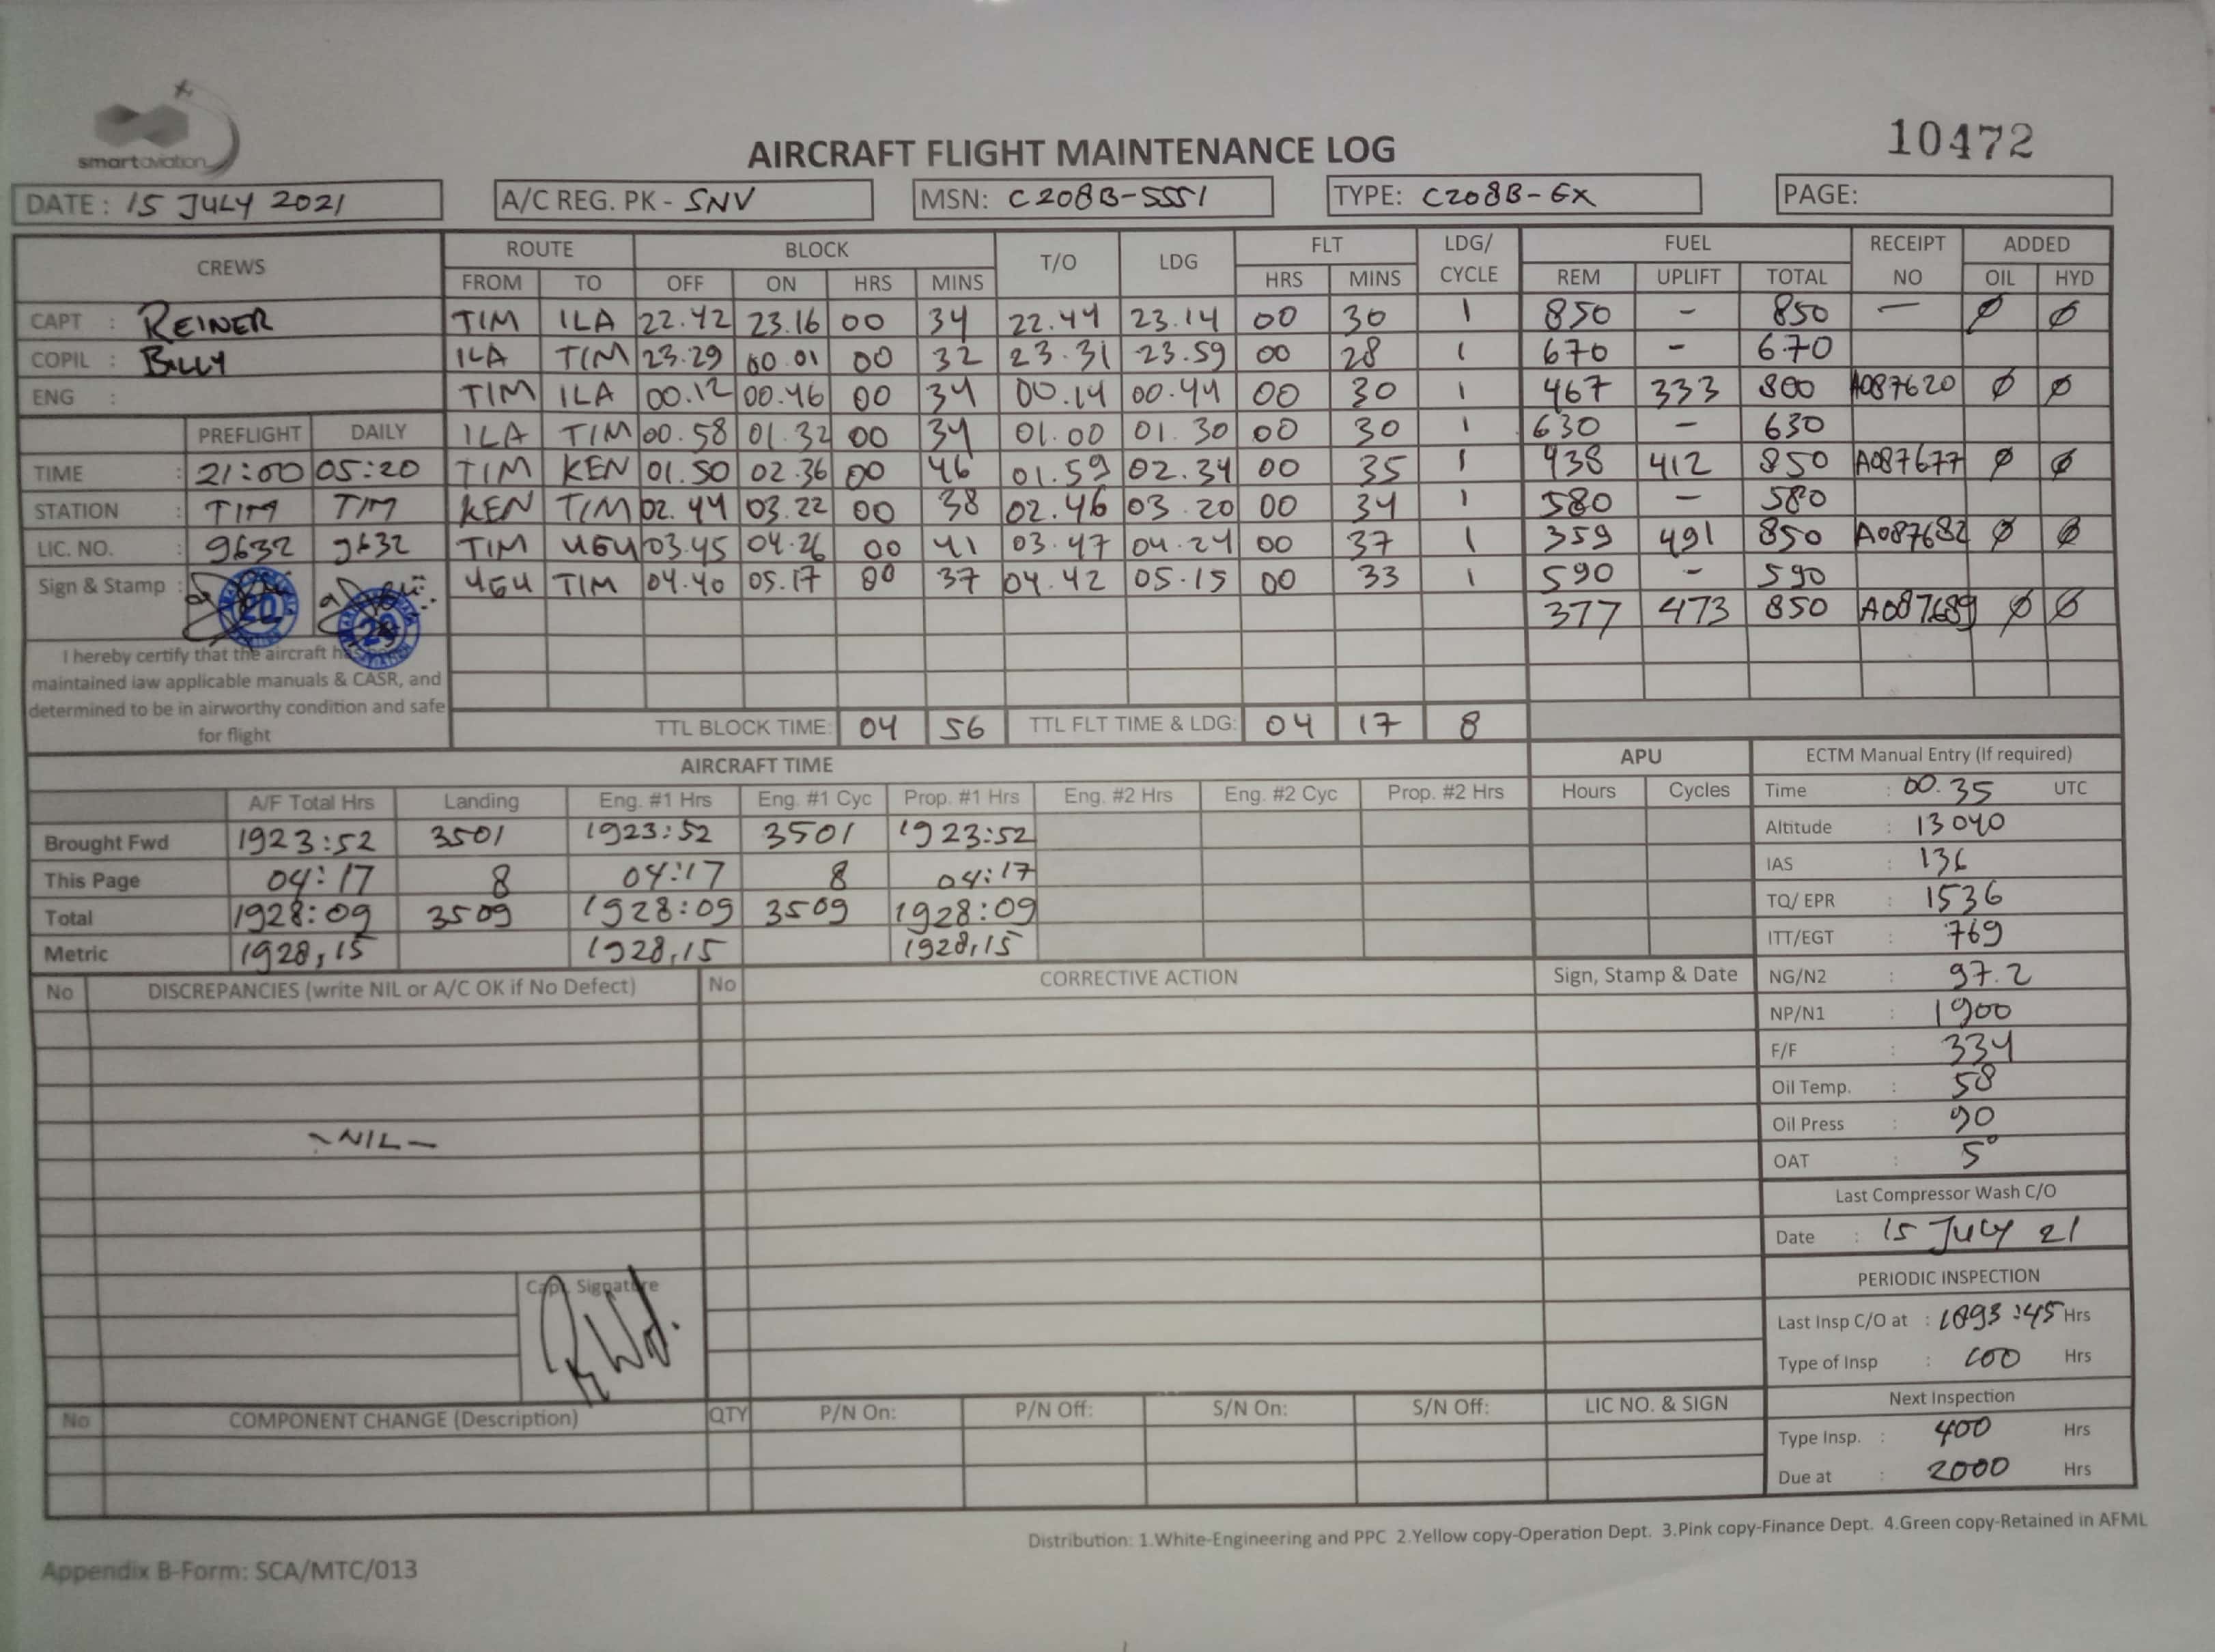 smartaviation
10472
AIRCRAFT FLIGHT MAINTENANCE LOG
DATE : 15 JULY 2021 A/C REG. PK - SNV MSN: C208B-5551 TYPE: C208B-EX PAGE:
CREWS ROUTE BLOCK T/O LDG FLT LDG/ CYCLE FUEL RECEIPT NO ADDED
FROM TO OFF ON HRS MINS HRS MINS REM UPLIFT TOTAL OIL HYD
CAPT : REINER TIM ILA 22.42 23.16 00 34 22.44 23.14 00 30 1 850 - 850 - Ø Ø
COPIL : BILLY ILA TIM 23.29 00.01 00 32 23.31 23.59 00 28 1 670 - 670
ENG : TIM ILA 00.12 00.46 00 34 00.14 00.44 00 30 1 467 333 800 A087620 Ø Ø
PREFLIGHT DAILY ILA TIM 00.58 01.32 00 34 01.00 01.30 00 30 1 630 - 630
TIME : 21:00 05:20 TIM KEN 01.50 02.36 00 46 01.59 02.34 00 35 1 438 412 850 A087677 Ø Ø
STATION : TIM TIM KEN TIM 02.44 03.22 00 38 02.46 03.20 00 34 1 580 - 580
LIC. NO. : 9632 9632 TIM UGU 03.45 04.26 00 41 03.47 04.24 00 37 1 359 491 850 A087682 Ø Ø
Sign & Stamp : UGU TIM 04.40 05.17 00 37 04.42 05.15 00 33 1 590 - 590
377 473 850 A087689 Ø Ø
I hereby certify that the aircraft has
maintained iaw applicable manuals & CASR, and
determined to be in airworthy condition and safe
for flight
TTL BLOCK TIME: 04 56 TTL FLT TIME & LDG: 04 17 8
AIRCRAFT TIME APU ECTM Manual Entry (If required)
A/F Total Hrs Landing Eng. #1 Hrs Eng. #1 Cyc Prop. #1 Hrs Eng. #2 Hrs Eng. #2 Cyc Prop. #2 Hrs Hours Cycles Time : 00.35 UTC
Brought Fwd 1923:52 3501 1923:52 3501 1923:52 Altitude : 13040
This Page 04:17 8 04:17 8 04:17 IAS : 136
Total 1928:09 3509 1928:09 3509 1928:09 TQ/ EPR : 1536
Metric 1928,15 1928,15 1928,15 ITT/EGT : 769
No DISCREPANCIES (write NIL or A/C OK if No Defect) No CORRECTIVE ACTION Sign, Stamp & Date NG/N2 : 97.2
NP/N1 : 1900
F/F : 334
Oil Temp. : 58
- NIL - Oil Press : 90
OAT : 5°
Last Compressor Wash C/O
Date : 15 JULY 21
Capt. Signature PERIODIC INSPECTION
Last Insp C/O at : 1893:45 Hrs
Type of Insp : 100 Hrs
No COMPONENT CHANGE (Description) QTY P/N On: P/N Off: S/N On: S/N Off: LIC NO. & SIGN Next Inspection
Type Insp. : 400 Hrs
Due at : 2000 Hrs
Distribution: 1.White-Engineering and PPC 2.Yellow copy-Operation Dept. 3.Pink copy-Finance Dept. 4.Green copy-Retained in AFML
Appendix B-Form: SCA/MTC/013